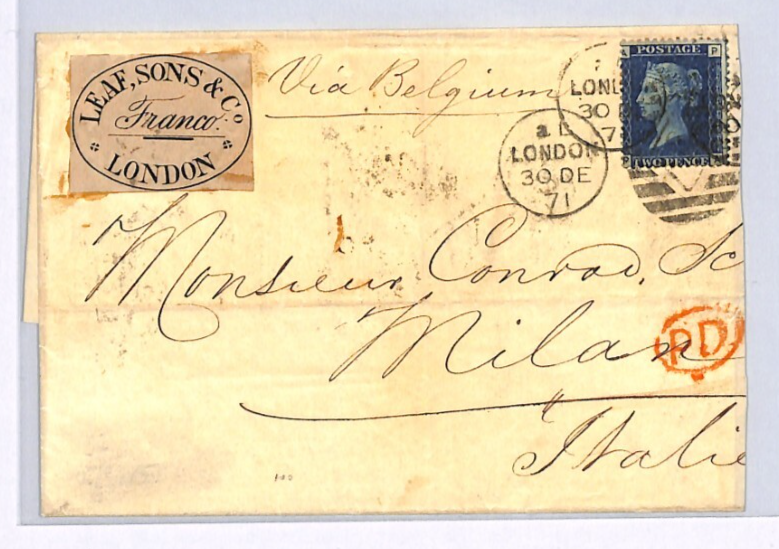 LEAF, SONS & Co
Franco.
LONDON
Via Belgium
LONDON
30 DE
71
A P
POSTAGE
TWO PENCE
a
LONDON
30 DE
71
Monsieur Conrad Sc
Milan
PD
Italie